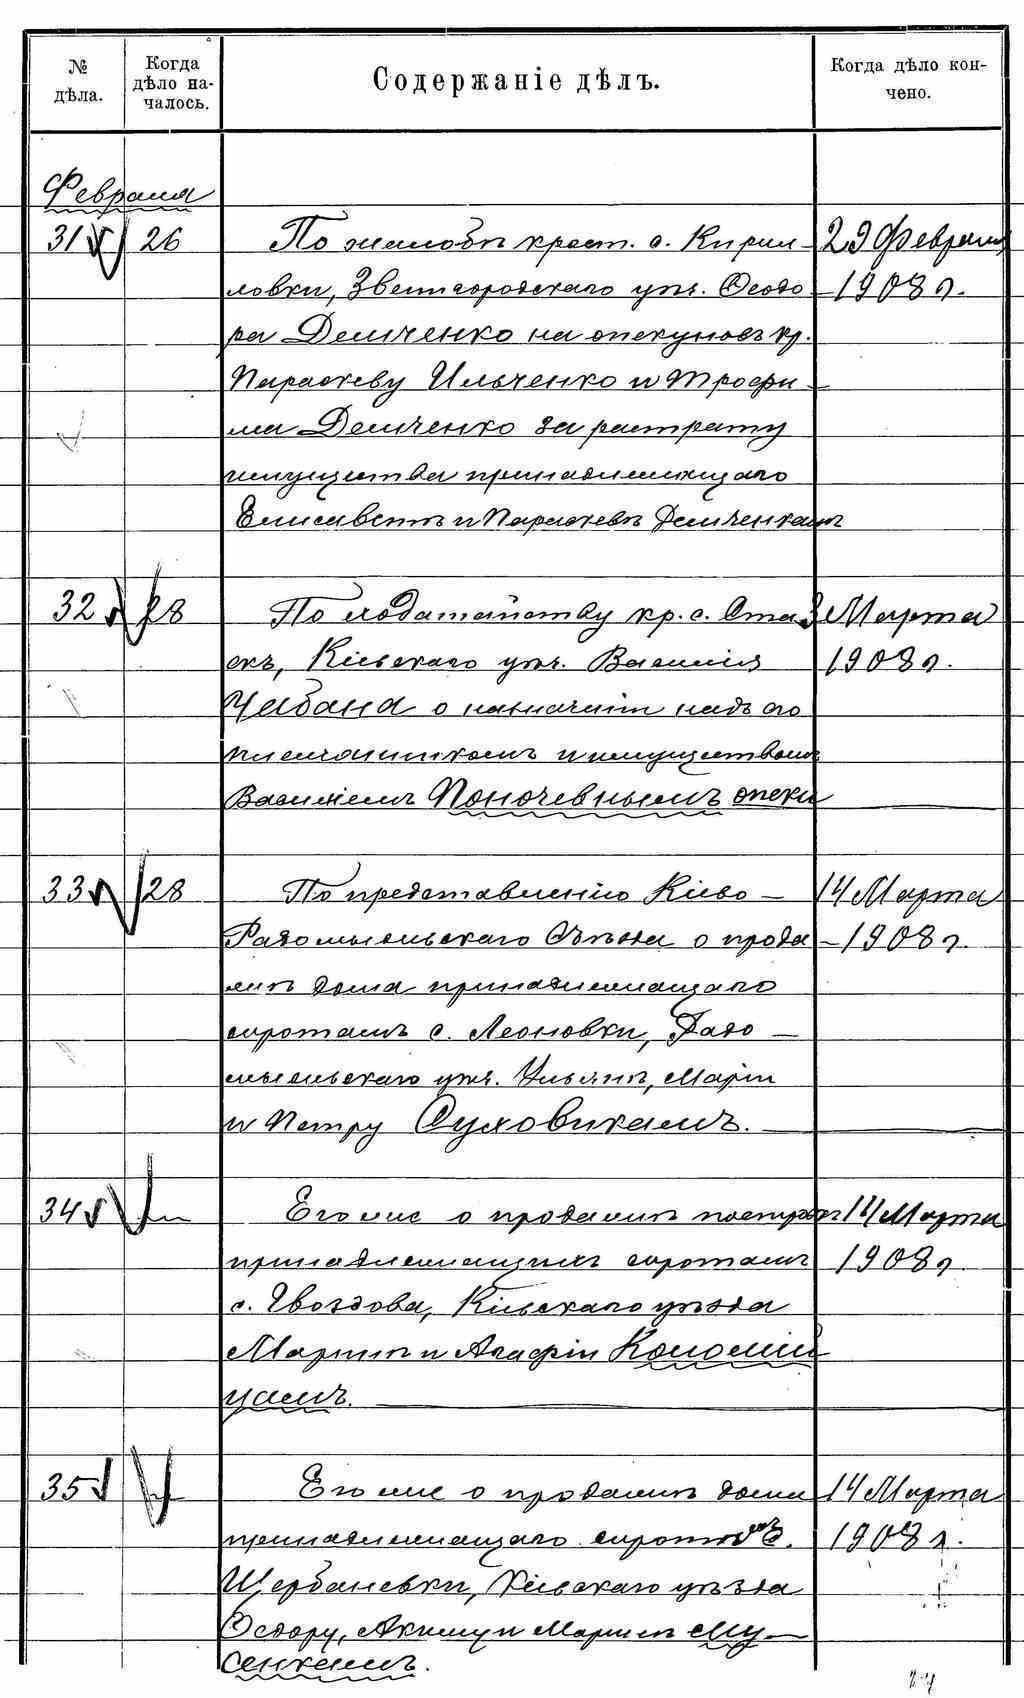 № дѣла.
Когда дѣло на-
чалось.
Содержаніе дѣлъ.
Когда дѣло кон-
чено.
Февраля
31 26 По жалобѣ крест. с. Кирил- 29 Февраля
ловки, Звенигородскаго уѣз. Ѳеодо- 1908 г.
ра Демченко на опекуновъ кр.
Параскеву Ильченко и Трофи-
ма Демченко за растрату
имущества принадлежащаго
Елисаветѣ и Параскевѣ Демченкамъ
32 28 По ходатайству кр. с. Ста- 3 Марта
екъ, Кіевскаго уѣз. Василія 1908 г.
Чабана о назначеніи надъ его
племянникомъ и имуществомъ
Василіемъ Поночевнымъ опеки
33 28 По представленію Кіево- 14 Марта
Радомысльскаго Съѣзда о прода- 1908 г.
жѣ дома принадлежащаго
сиротамъ с. Леоновки, Радо-
мысльскаго уѣз. Ульянѣ, Маріи
и Петру Суховикамъ.
34 Его же о продажѣ построекъ 14 Марта
принадлежащихъ сиротамъ 1908 г.
с. Гвоздова, Кіевскаго уѣзда
Мартинѣ и Агафіи Коломій
цамъ.
35 Его же о продажѣ дома 14 Марта
принадлежащаго сиротамъ с. 1908 г.
Щербаневки, Кіевскаго уѣзда
Ѳедору, Акиму и Маріи Му-
сенкамъ.